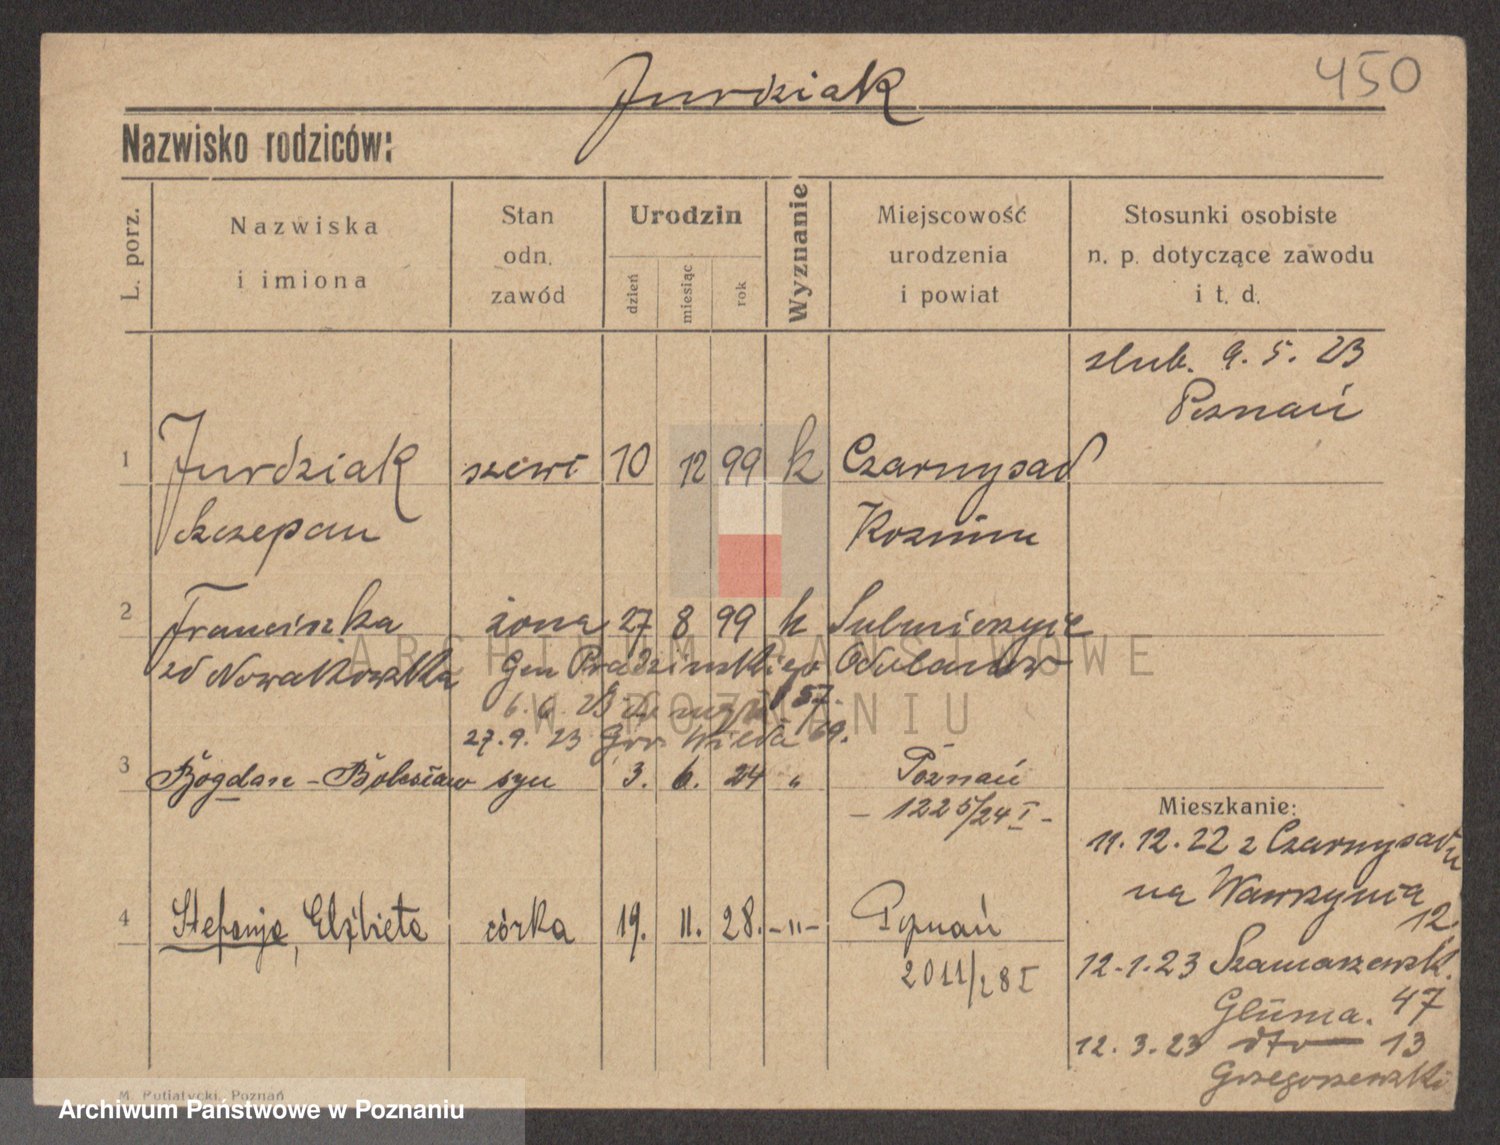 450
Jurdziak
Nazwisko rodziców:
L. porz.
Nazwiska
i imiona
Stan
odn.
zawód
Urodzin
dzień
miesiąc
rok
Wyznanie
Miejscowość
urodzenia
i powiat
Stosunki osobiste
n. p. dotyczące zawodu
i t. d.
slub. 9. 5. 23
Poznań
1 Jurdziak szewc 10 12 99 k Czarnysad
Szczepan Kozmin
2 Franciszka żona 27 8 99 k Sulmierzyce
zd Nowakowska Gen Prądzinskiego Odolanów
6. 6. 23 57.
27. 9. 23 Gór. Wilda 69.
3 Bogdan - Bolesław syn 3. 6. 24 " Poznań
- 1225/24 I -
Mieszkanie:
11. 12. 22 z Czarnysadu
na Wawrzynia
12.
4 Stefanja, Elżbieta córka 19. 11. 28. -"- Poznań
2011/28 I
12.1.23 Szamarzewsk.
47
Glüma.
12. 3. 23 dto 13
Grzegorzewski
M. Putiatycki, Poznań
ARCHIWUM PAŃSTWOWE
W POZNANIU
Archiwum Państwowe w Poznaniu